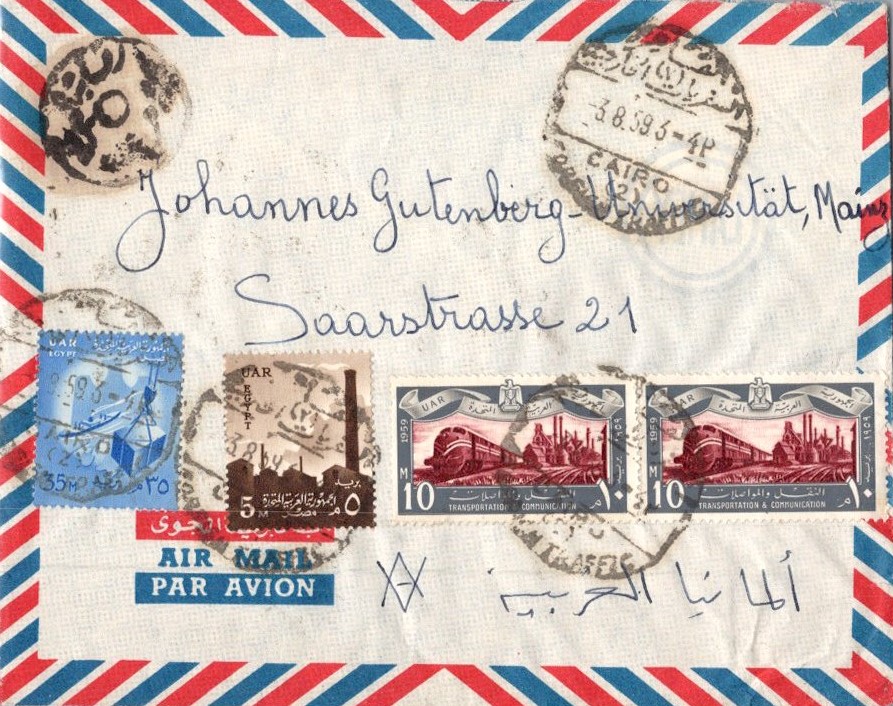 3.8.59.3-4P
CAIRO
Johannes Gutenberg-Universität, Mainz
Saarstrasse 21
UAR
EGYPT
35M ٣٥ م
UAR
EGYPT
بريد
الجمهورية العربية المتحدة
مصر
5M ٥ م
UAR الجمهورية العربية المتحدة
1959 ١٩٥٩
بريد
M 10 ١٠ م
النقل والمواصلات
TRANSPORTATION & COMMUNICATION
UAR الجمهورية العربية المتحدة
1959 ١٩٥٩
بريد
M 10 ١٠ م
النقل والمواصلات
TRANSPORTATION & COMMUNICATION
AIR MAIL
PAR AVION
ألمانيا الغربية